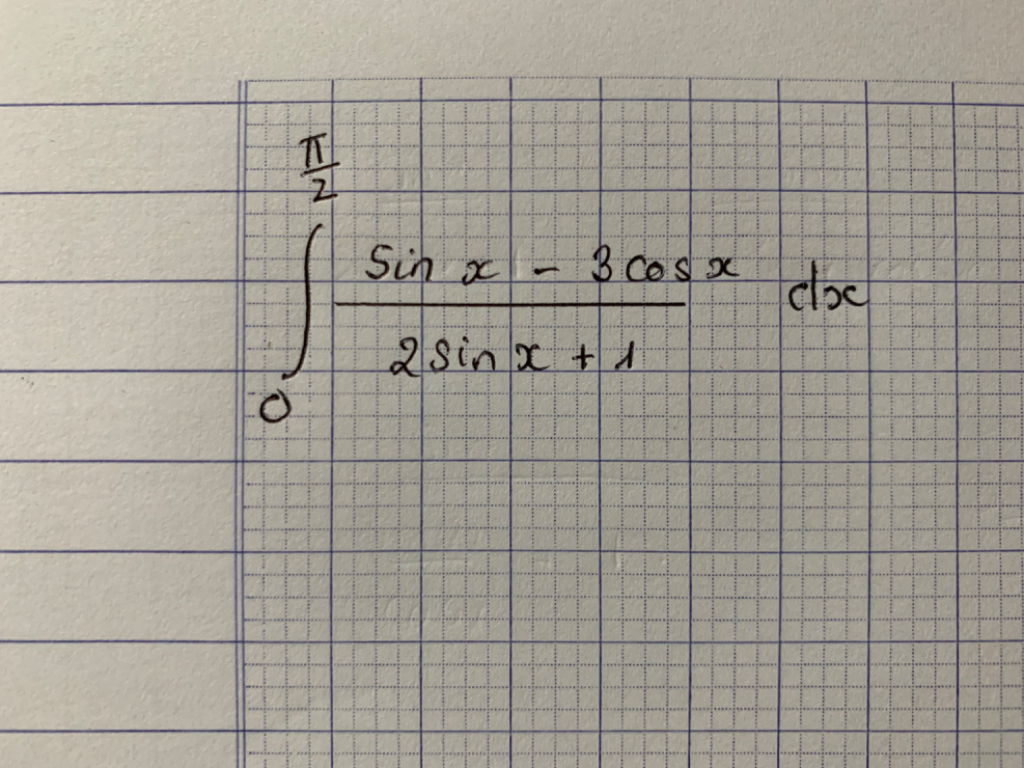 π/2
∫ (sin x - 3 cos x)/(2 sin x + 1) dx
0